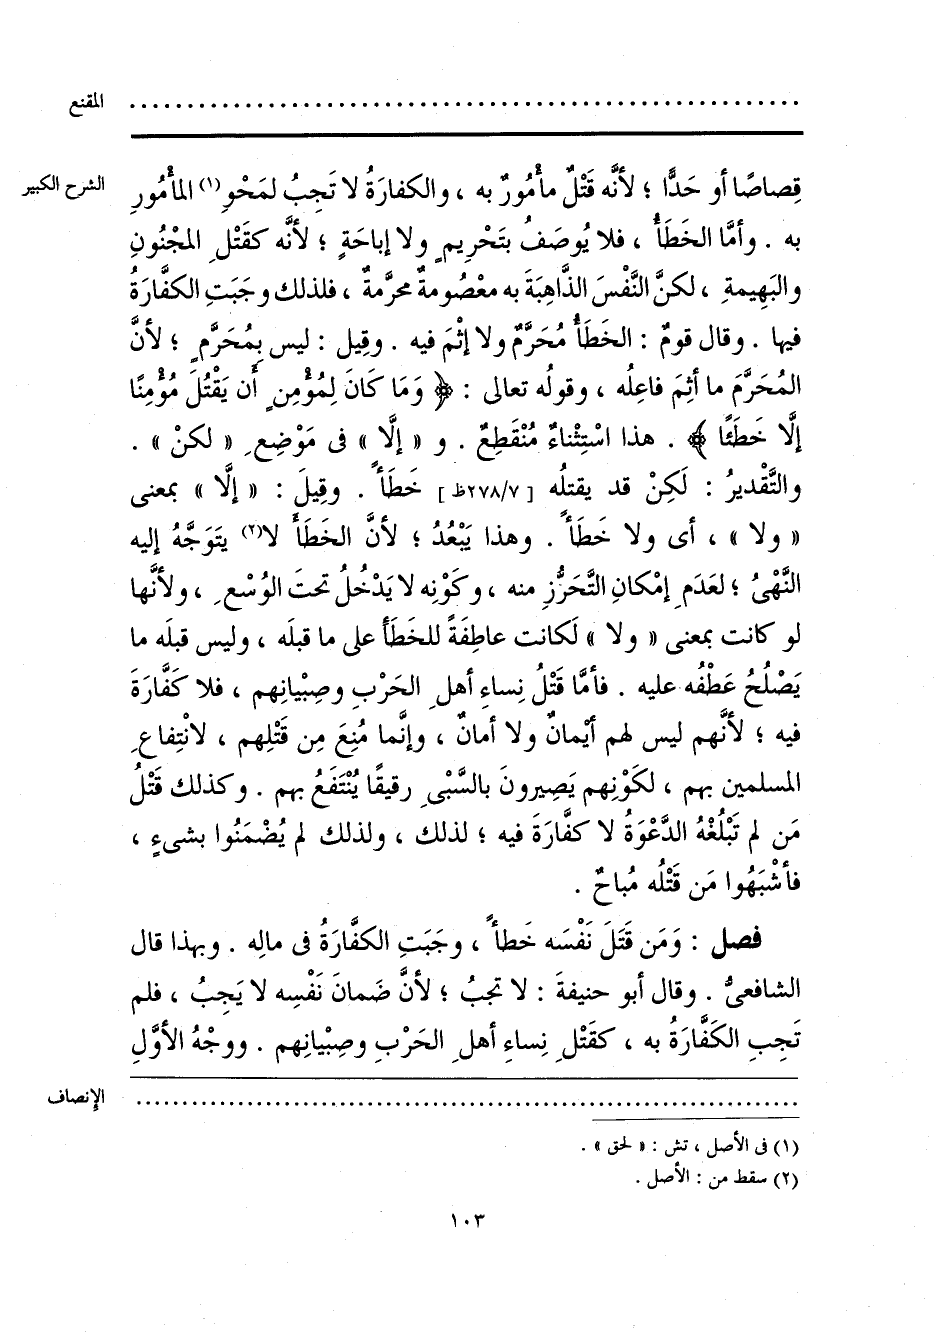 المقنع ................................................................
الشرح الكبير
قِصاصًا أو حَدًّا ؛ لأنَّه قَتْلٌ مأْمُورٌ به ، والكفارَةُ لا تَجِبُ لمَحْوِ(١) المأْمُورِ
به . وأمَّا الخَطَأُ ، فلا يُوصَفُ بتَحْرِيمٍ ولا إباحَةٍ ؛ لأنَّه كقَتْلِ المجْنُونِ
والبَهِيمةِ ، لكنَّ النَّفْسَ الذَّاهِبَةَ به معْصُومةٌ محرَّمةٌ ، فلذلك وجَبَتِ الكفَّارَةُ
فيها . وقال قومٌ : الخَطَأُ مُحَرَّمٌ ولا إثْمَ فيه . وقِيل : ليس بِمُحَرَّمٍ ؛ لأنَّ
المُحَرَّمَ ما أثِمَ فاعِلُه ، وقولُه تعالى : ﴿ وَمَا كَانَ لِمُؤْمِنٍ أَن يَقْتُلَ مُؤْمِنًا
إلَّا خَطَئًا ﴾ . هذا اسْتِثْناءٌ مُنْقَطِعٌ . و « إلَّا » فى مَوْضِعِ « لكنْ » .
والتَّقْديرُ : لَكِنْ قد يقتلُه [ ٢٧٨/٧ظ ] خَطَأً . وقِيلَ : « إلَّا » بمعنى
« ولا » ، أى ولا خَطَأً . وهذا يَبْعُدُ ؛ لأنَّ الخطَأَ لا(٢) يتَوَجَّهُ إليه
النَّهْىُ ؛ لعَدَمِ إمْكانِ التَّحَرُّزِ منه ، وكَوْنِه لا يَدْخُلُ تحتَ الوُسْعِ ، ولأنَّها
لو كانت بمعنى « ولا » لَكانت عاطِفَةً للخَطَأ على ما قبلَه ، وليس قبلَه ما
يَصْلُحُ عَطْفُه عليه . فأمَّا قَتْلُ نِساءِ أهلِ الحَرْبِ وصِبْيانِهم ، فلا كَفَّارَةَ
فيه ؛ لأنَّهم ليس لهم أيْمانٌ ولا أمانٌ ، وإنَّما مُنِعَ مِن قَتْلِهم ، لانْتِفاعِ
المسلمين بهم ، لكَوْنِهم يَصِيرونَ بالسَّبْىِ رقيقًا يُنْتَفَعُ بهم . وكذلك قَتْلُ
مَن لم تَبْلُغْهُ الدَّعْوَةُ لا كفَّارَةَ فيه ؛ لذلك ، ولذلك لم يُضْمَنُوا بشىءٍ ،
فأشْبَهُوا مَن قَتْلُه مُباحٌ .
فصل : وَمَن قَتَلَ نَفْسَه خَطأً ، وجَبَتِ الكفَّارَةُ فى مالِه . وبهذا قال
الشافعىُّ . وقال أبو حنيفةَ : لا تجبُ ؛ لأنَّ ضَمانَ نَفْسِه لا يَجِبُ ، فلم
تَجِبِ الكَفَّارَةُ به ، كقَتْلِ نِساءِ أهلِ الحَرْبِ وصِبْيانِهم . ووجْهُ الأوَّلِ
الإنصاف ................................................................
(١) فى الأصل ، تش : « لحق » .
(٢) سقط من : الأصل .
١٠٣